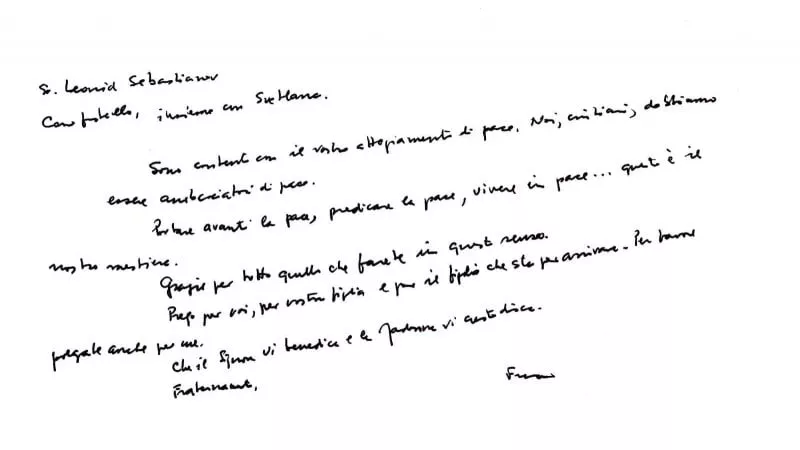 Sr. Leonid Sebastianov
Caro fratello, insieme con Svetlana.
Sono contento con il vostro atteggiamento di pace. Noi, cristiani, dobbiamo
essere ambasciatori di pace.
Portare avanti la pace, predicare la pace, vivere in pace... questo è il
nostro mestiere.
Grazie per tutto quello che farete in questo senso.
Prego per voi, per vostra figlia e per il figlio che sta per arrivare. Per favore
pregate anche per me.
Che il Signore vi benedica e la Madonna vi custodisca.
Fraternamente,